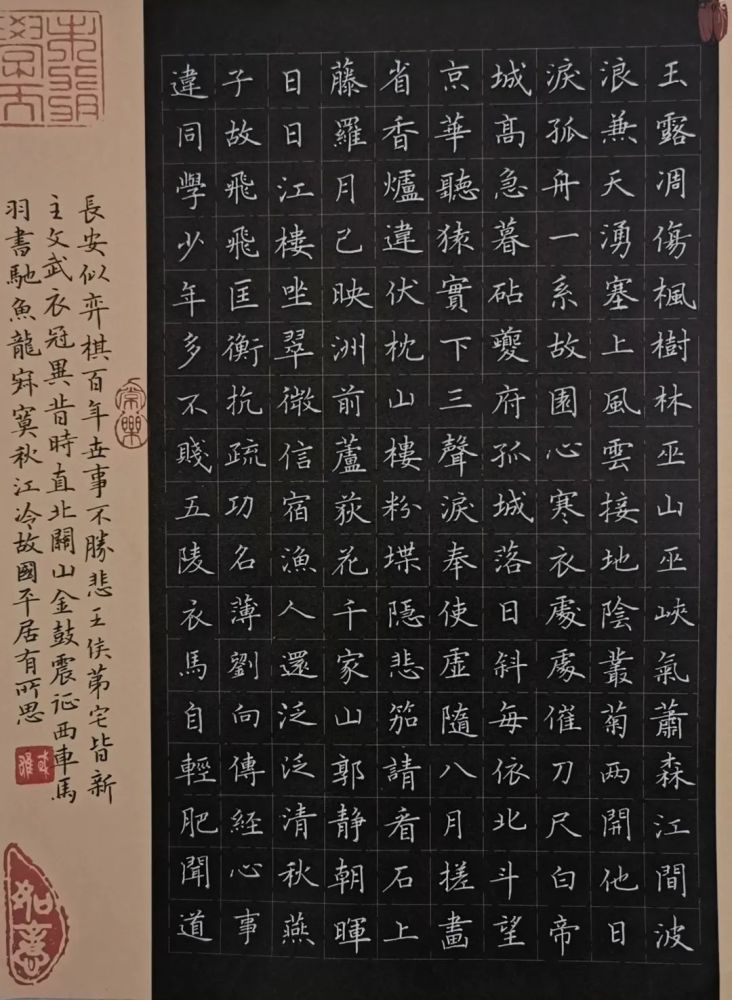 玉露凋傷楓樹林巫山巫峽氣蕭森江間波
浪兼天湧塞上風雲接地陰叢菊两開他日
淚孤舟一系故園心寒衣處處催刀尺白帝
城高急暮砧夔府孤城落日斜每依北斗望
京華聽猿實下三聲淚奉使虛隨八月搓畫
省香爐違伏枕山樓粉堞隱悲笳請看石上
藤羅月已映洲前蘆荻花千家山郭静朝暉
日日江樓坐翠微信宿漁人還泛泛清秋燕
子故飛飛匡衡抗疏功名薄劉向傳經心事
違同學少年多不賤五陵衣馬自輕肥聞道
長安似弈棋百年世事不勝悲王侯第宅皆新
主文武衣冠異昔時直北關山金鼓震征西車馬
羽書馳魚龍寂寞秋江冷故國平居有所思
常樂
如意